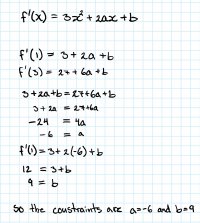 f'(x) = 3x² + 2ax + b
f'(1) = 3 + 2a + b
f'(3) = 27 + 6a + b
3 + 2a + b = 27 + 6a + b
3 + 2a = 27 + 6a
-24 = 4a
-6 = a
f'(1) = 3 + 2(-6) + b
12 = 3 + b
9 = b
so the constraints are a=-6 and b=9